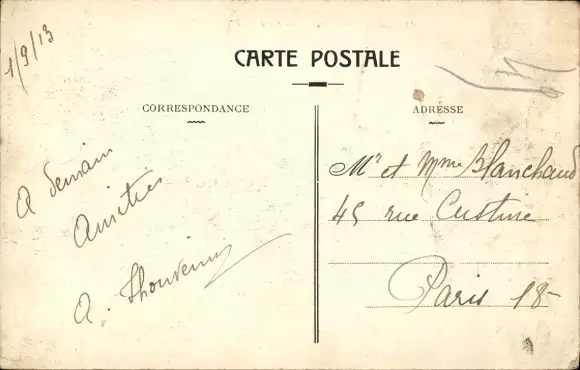 1/9/13
CARTE POSTALE
CORRESPONDANCE
A demain
Amitiés
A. Thouvenin
ADRESSE
Mr et Mme Blanchaud
45 rue Custine
Paris 18-